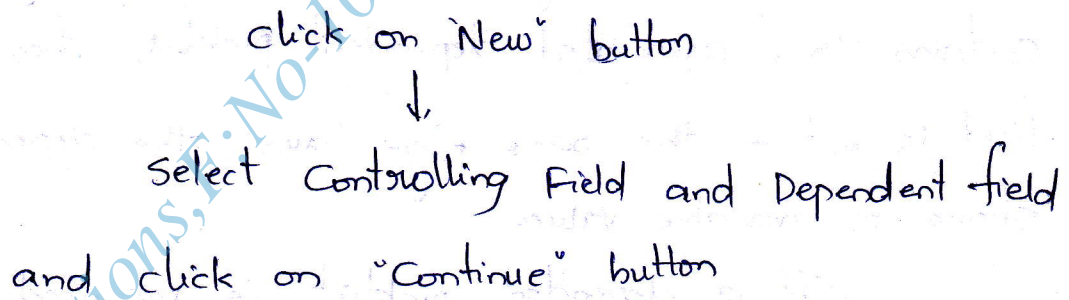 click on "New" button
↓
Select Controlling Field and Dependent field
and click on "Continue" button
ions, F.No-10